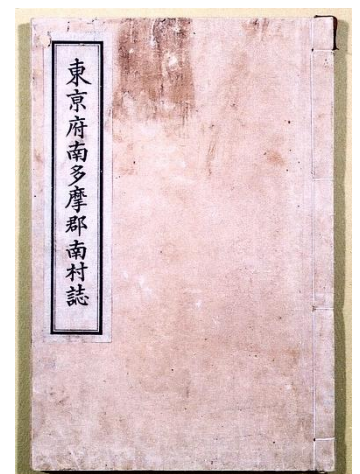 東京府南多摩郡南村誌